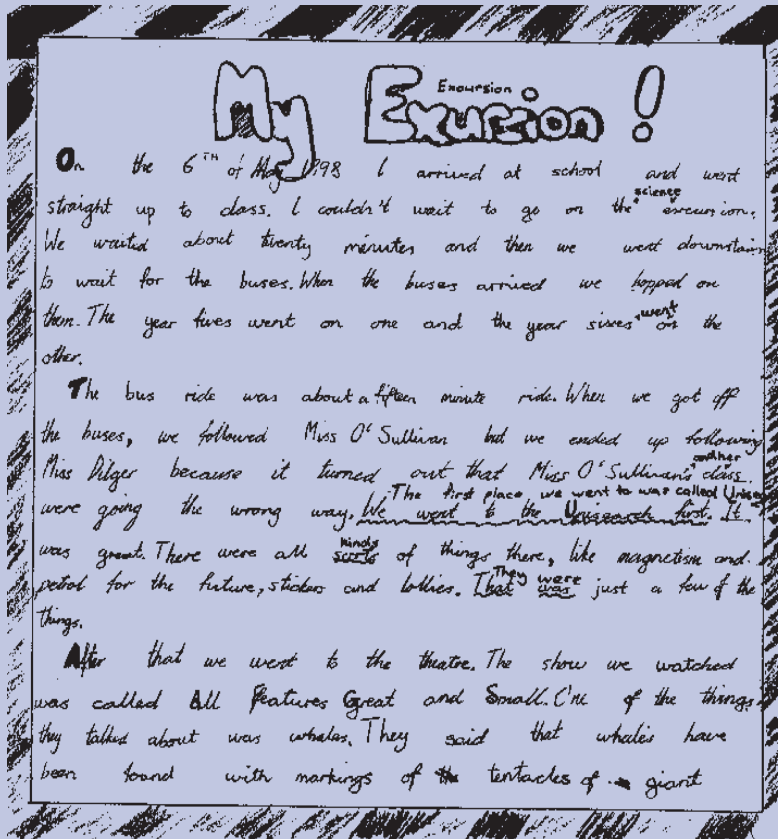 Excursion
My Exursion!
On the 6TH of May 1998 I arrived at school and went
science
straight up to class. I couldn't wait to go on the excursion.
We waited about twenty minutes and then we went downstairs
to wait for the buses. When the buses arrived we hopped on
them. The year fives went on one and the year sixes went on the
other.
The bus ride was about a fifteen minute ride. When we got off
the buses, we followed Miss O'Sullivan but we ended up following
and her
Miss Dilger because it turned out that Miss O'Sullivan's class
The first place, we went to was called
were going the wrong way. We went to the Unisearch first. It
kinds
was great. There were all sorts of things there, like magnetism and
They were
petrol for the future, stickers and lollies. That was just a few of the
things.
After that we went to the theatre. The show we watched
was called All Features Great and Small. One of the things
they talked about was whales. They said that whales have
been found with markings of the tentacles of giant